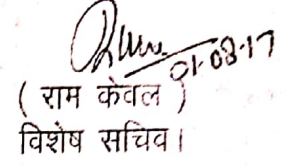 01-08-17
( राम केवल )
विशेष सचिव।